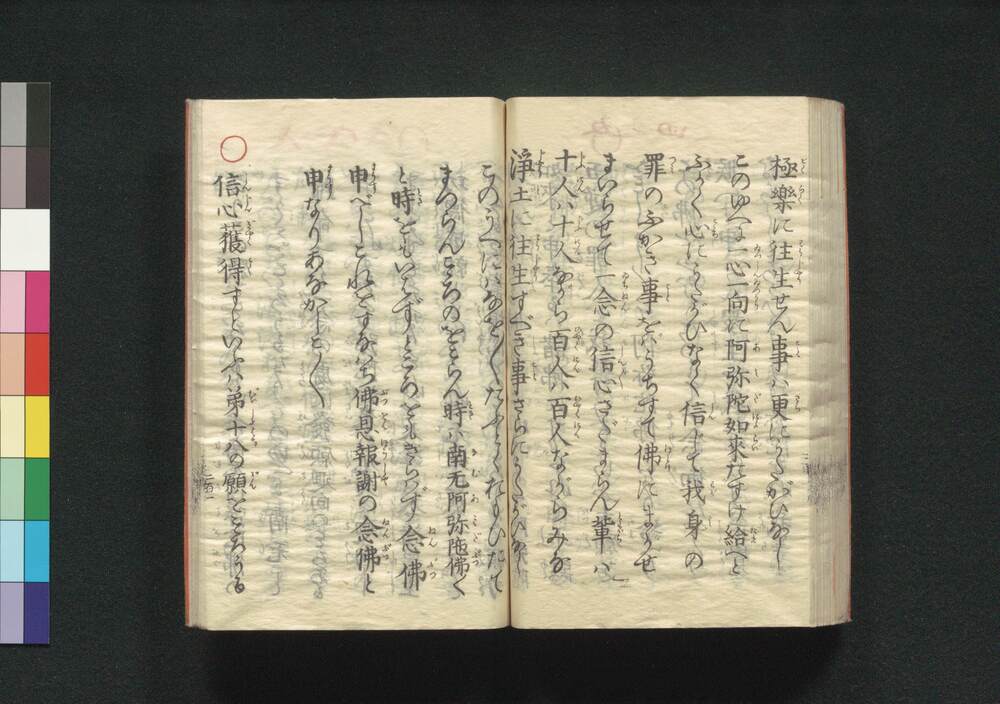 極樂に往生せん事ハ更にうたがひなし
このゆへに一心一向に阿弥陀如來たすけ給へと
ふかく心にうたがひなく信じて我身の
罪のふかき事をバうちすて佛にまかせ
まいらせて一念の信心さだまらん輩ハ
十人ハ十人ながら百人ハ百人ながらみな
淨土に往生すべき事さらにうたがひなし
このうへにハなを〱たふとくおもひたて
まつらんこゝろのをこらん時ハ南无阿弥陁佛〱
と時をもいはずところをもきらハず念佛
申べしこれをすなハち佛恩報謝の念佛と
申なりあなかしこ〱
信心獲得すといふハ第十八の願をこゝろうる